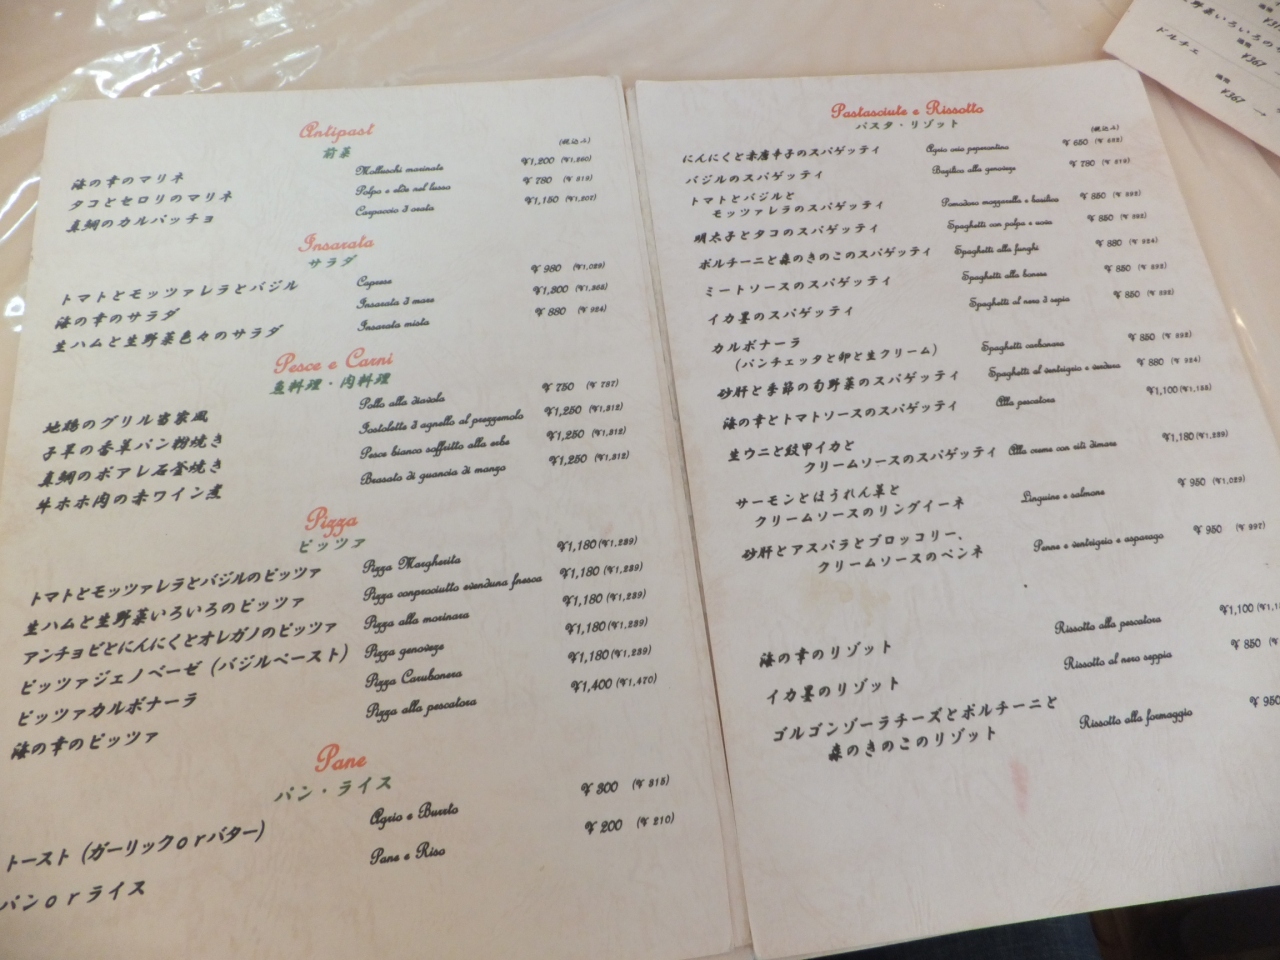 Antipast
前菜
(税込み)
海の幸のマリネ Molluschi marinate ¥1,200 (¥1,260)
タコとセロリのマリネ ¥ 780 (¥ 819)
真鯛のカルパッチョ ¥1,150 (¥1,207)
Insarata
サラダ
トマトとモッツァレラとバジル Caprese ¥ 980 (¥1,029)
海の幸のサラダ Insarata d mare ¥1,300 (¥1,365)
生ハムと生野菜色々のサラダ Insarata mista ¥ 880 (¥ 924)
Pesce e Carni
魚料理・肉料理
地鶏のグリル Pollo alla diavola ¥ 750 (¥ 787)
子羊の香草パン粉焼き ¥1,250 (¥1,312)
真鯛のポアレ石釜焼き Pesce bianco soffritto alla erbe ¥1,250 (¥1,312)
牛ホホ肉の赤ワイン煮 Brasato di guancia di manzo ¥1,250 (¥1,312)
Pizza
ピッツァ
トマトとモッツァレラとバジルのピッツァ Pizza Margherita ¥1,180 (¥1,239)
生ハムと生野菜いろいろのピッツァ Pizza ¥1,180 (¥1,239)
アンチョビとにんにくとオレガノのピッツァ Pizza alla marinara ¥1,180 (¥1,239)
ピッツァジェノベーゼ (バジルペースト) Pizza ¥1,180 (¥1,239)
ピッツァカルボナーラ Pizza ¥1,180 (¥1,239)
海の幸のピッツァ Pizza alla pescatora ¥1,400 (¥1,470)
Pane
パン・ライス
トースト (ガーリックorバター) Agrio e Burrto ¥ 300 (¥ 315)
パンorライス Pane e Riso ¥ 200 (¥ 210)
Pastasciute e Rissotto
パスタ・リゾット
(税込み)
にんにくと赤唐辛子のスパゲッティ ¥ 650
バジルのスパゲッティ ¥ 780 (¥ 819)
トマトとバジルと
モッツァレラのスパゲッティ ¥ 850 (¥ 892)
明太子とタコのスパゲッティ ¥ 850 (¥ 892)
ポルチーニと森のきのこのスパゲッティ Spaghetti alla funghi ¥ 880 (¥ 924)
ミートソースのスパゲッティ Spaghetti alla ¥ 850 (¥ 892)
イカ墨のスパゲッティ Spaghetti al nero d sepia ¥ 850 (¥ 892)
カルボナーラ
(パンチェッタと卵と生クリーム) Spaghetti carbonara ¥ 850 (¥ 892)
砂肝と季節の旬野菜のスパゲッティ ¥ 880 (¥ 924)
海の幸とトマトソースのスパゲッティ Alla pescatora ¥1,100 (¥1,155)
生ウニと紋甲イカと
クリームソースのスパゲッティ ¥1,180 (¥1,239)
サーモンとほうれん草と
クリームソースのリングイーネ Linguine e salmone ¥ 980 (¥1,029)
砂肝とアスパラとブロッコリー、
クリームソースのペンネ Penne e ventrigrio e asparago ¥ 950 (¥ 997)
海の幸のリゾット Rissotto alla pescatora ¥1,100
イカ墨のリゾット Rissotto al nero seppia ¥ 850
ゴルゴンゾーラチーズとポルチーニと
森のきのこのリゾット Rissotto alla formaggio ¥ 950
野菜いろいろの
ドルチェ
¥367
¥367